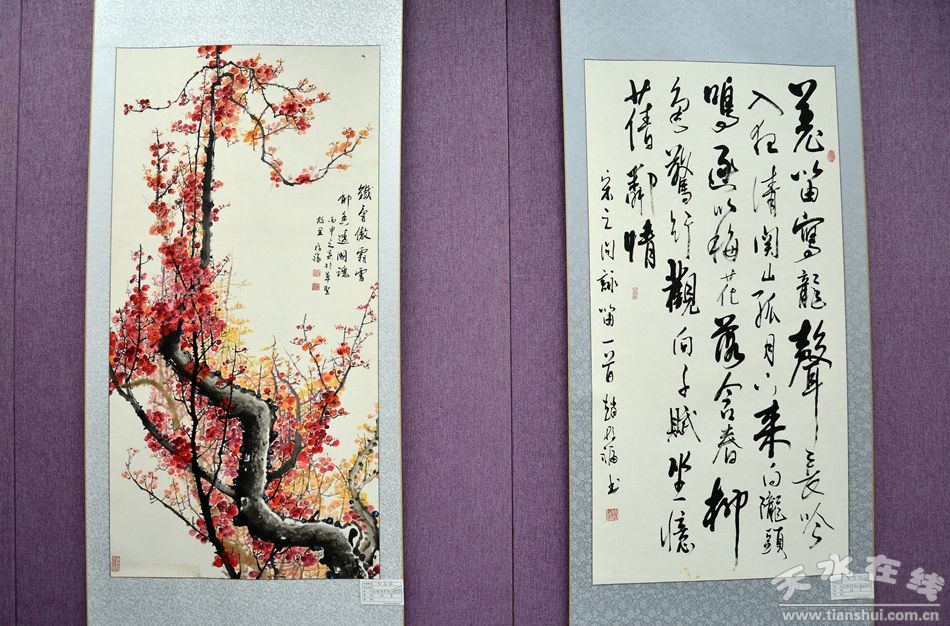 鐵骨傲霜雪
幽香透國魂
丙申之夏於草聖
故里
羌笛寫龍聲長吟
入夜清関山孤月下来向隴頭
鳴逐吹梅花落含春柳
色驚行觀向子賦坐憶
舊鄰情
宋之问詠笛一首 趙 福书
天水在线
www.tianshui.com.cn